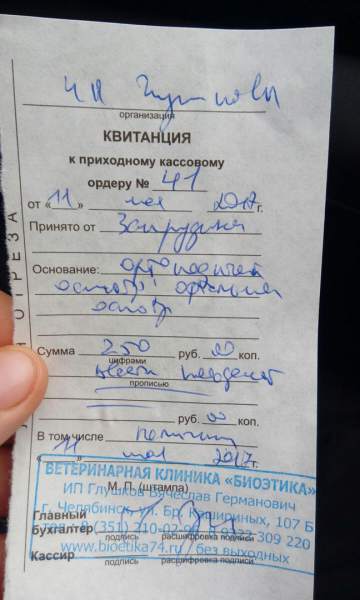 организация
КВИТАНЦИЯ
к приходному кассовому
ордеру № 41
от «11» мая 2017 г.
Принято от
Основание:
осмотр
осмотр
Сумма 250 руб. 00 коп.
цифрами
двести пятьдесят
прописью
руб. 00 коп.
В том числе
«11» мая 2017 г.
ВЕТЕРИНАРНАЯ КЛИНИКА «БИОЭТИКА»
М. П. (штампа)
ИП Глушков Вячеслав Германович
Главный
г. Челябинск, ул. Бр. Кашириных, 107 Б
бухгалтер
(351) 210-02-9 309 220
подпись расшифровка подписи
www.bioetika74.ru без выходных
Кассир
подпись расшифровка подписи
ОТРЕЗА